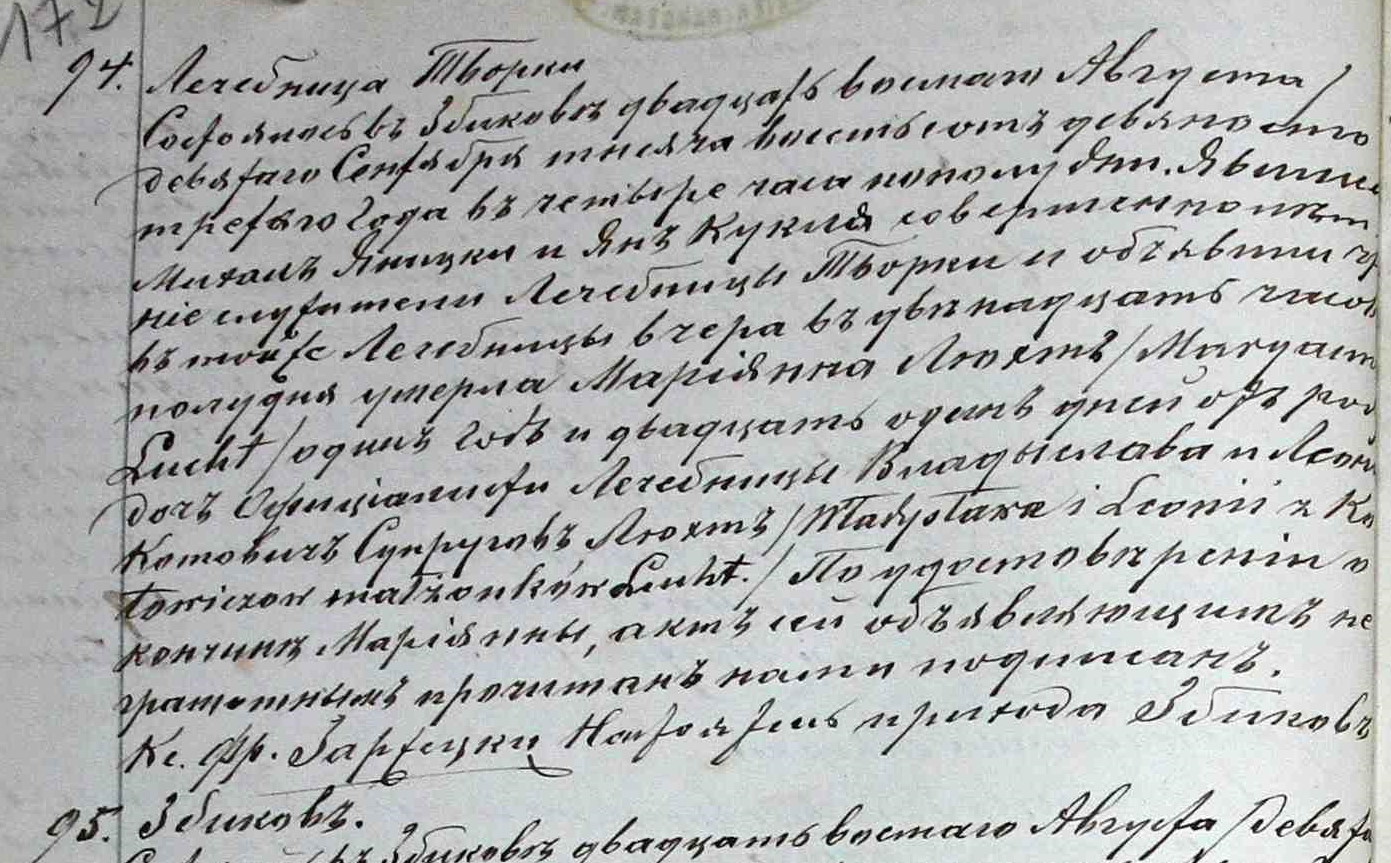 172
94. Лечебница Творки
Состоялось въ Збиковѣ двадцать восьмаго Августа /
девятаго Сентября тысяча восемьсотъ девяносто
третяго года въ четыре часа пополудни. Явились
Михалъ Яницки и Янъ Кукла совершеннолѣт
ніе служители Лечебницы Творки и объявили чт
въ тойже Лечебницы вчера въ двѣнадцать часов
полудня умерла Маріянна Люхтъ /
Lucht / одинъ годъ и двадцать одинъ дней отъ род
дочь Официалисты Лечебницы Владыслава и Леон
Котовичъ Супруговъ Люхтъ / Władysława i Leonii z Ko
towiczów małżonków Lucht. / По удостовѣреніи о
кончинѣ Маріянны, актъ сей объявляющимъ не
грамотнымъ прочитанъ нами подписанъ.
Кс. Фр. Настоятель прихода Збиковъ
95. Збиковъ.
въ Збиковѣ двадцать восьмаго Августа / девята